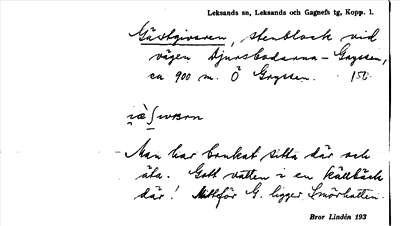 Leksands sn, Leksands och Gagnefs tg, Kopp. l.
Gästgivaren, stenblock vid
vägen Djursbodarna – Gryssen,
ca 900 m. Ö Gryssen. 150
Man har brukat sitta där och
äta. Gott vatten i en källbäck
där! Mittför G. ligger Smörhatten.
Bror Lindén 193